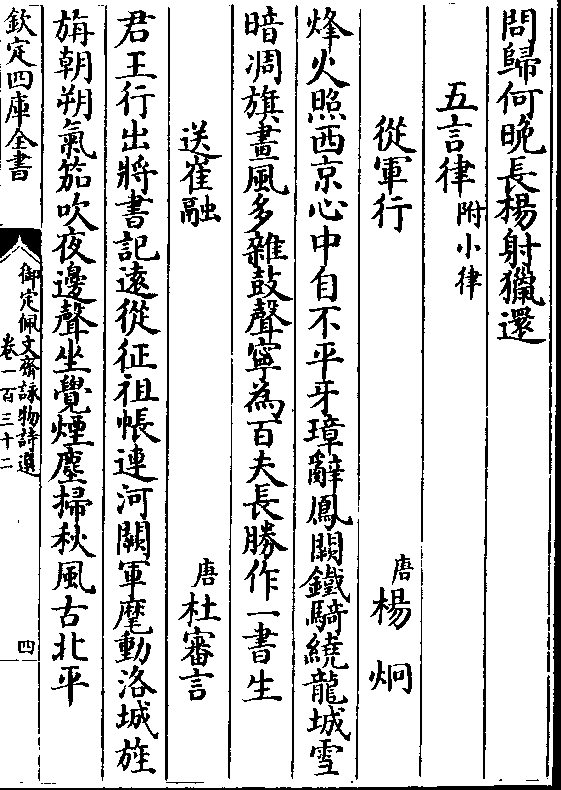 問歸何晚長楊射獵還
五言律附小律
從軍行 唐楊炯
烽火照西京心中自不平牙璋辭鳳闕鐵騎繞龍城雪
暗凋旗畫風多雜鼓聲寧為百夫長勝作一書生
送崔融 唐杜審言
君王行出將書記遠從征祖帳連河闕軍麾動洛城旌
旃朝朔氣笳吹夜邊聲坐覺煙塵掃秋風古北平
欽定四庫全書
御定佩文齋詠物詩選
卷一百三十二
四